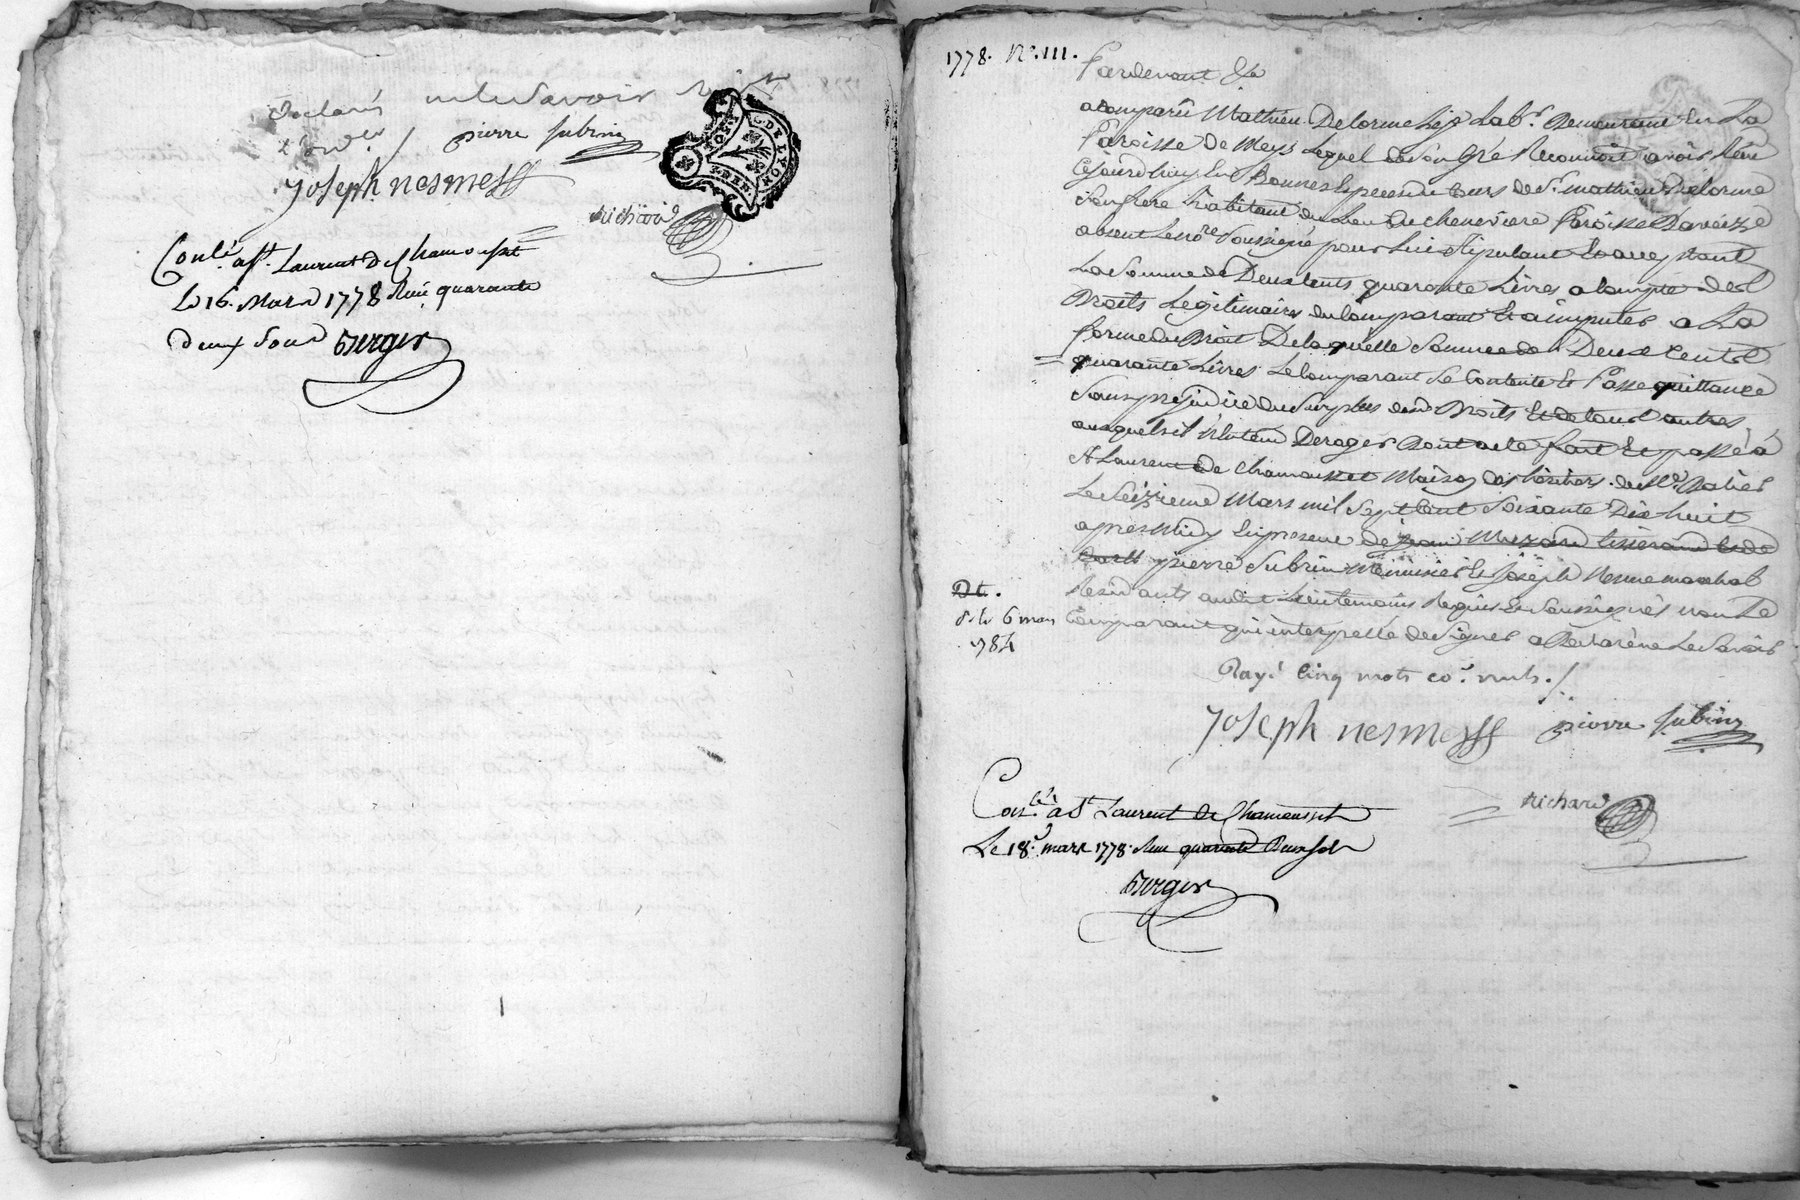 declaré ne le Savoir
pierre Subrin
Joseph nesmess
Richard
G. DE LYON
Conlé a St. Laurent De Chamousset
Le 16. Mars 1778 Reçu quarante
deux Sous Berger
1778. No. 111.
Pardevant &a
a comparû Mathieu Delorme Demeurant En La
Paroisse De Meys Lequel de Son Gré Reconnoit avoir Reçu
Cejourd'huy En Bonnes Especes du Cours de Sr. mathieu Delorme
Son frere habitant du Lieu Du cheneviere Paroisse Daveize
absent Le nore Soussigné pour Lui Stipulant Et acceptant
La Somme de Deux Cents quarante Livres a Compte des
Droits Légitimaires du Comparant Et a imputer a La
forme du Droit De laquelle Somme de Deux Cents
quarante Livres Le Comparant Se Contente Et Passe quittance
Sans préjudice du Surplus desd. Droits Et de tous autres
auxquels il N'entend Deroger Dont acte fait Et passé à
St Laurent de Chamousset Maison des héritiers de Me.
Le Seizieme Mars mil Sept Cent Soixante Dix huit
après Midy En presence de Jean tisserand Et de
pierre Subrin Menuisier Et Joseph Nesme marechal
Residants audit Lieu temoins Requis Et Soussignés non Le
Comparant qui interpellé de Signer a Declaré ne Le Savoir
Dt.
6 mars
1784
Rayé Cinq mots co. nuls./
Joseph nesmess pierre Subrin
Richard
Conlé. a St Laurent de Chamousset
Le 18. mars 1778. Reçu quarante Deux Sols
Berger